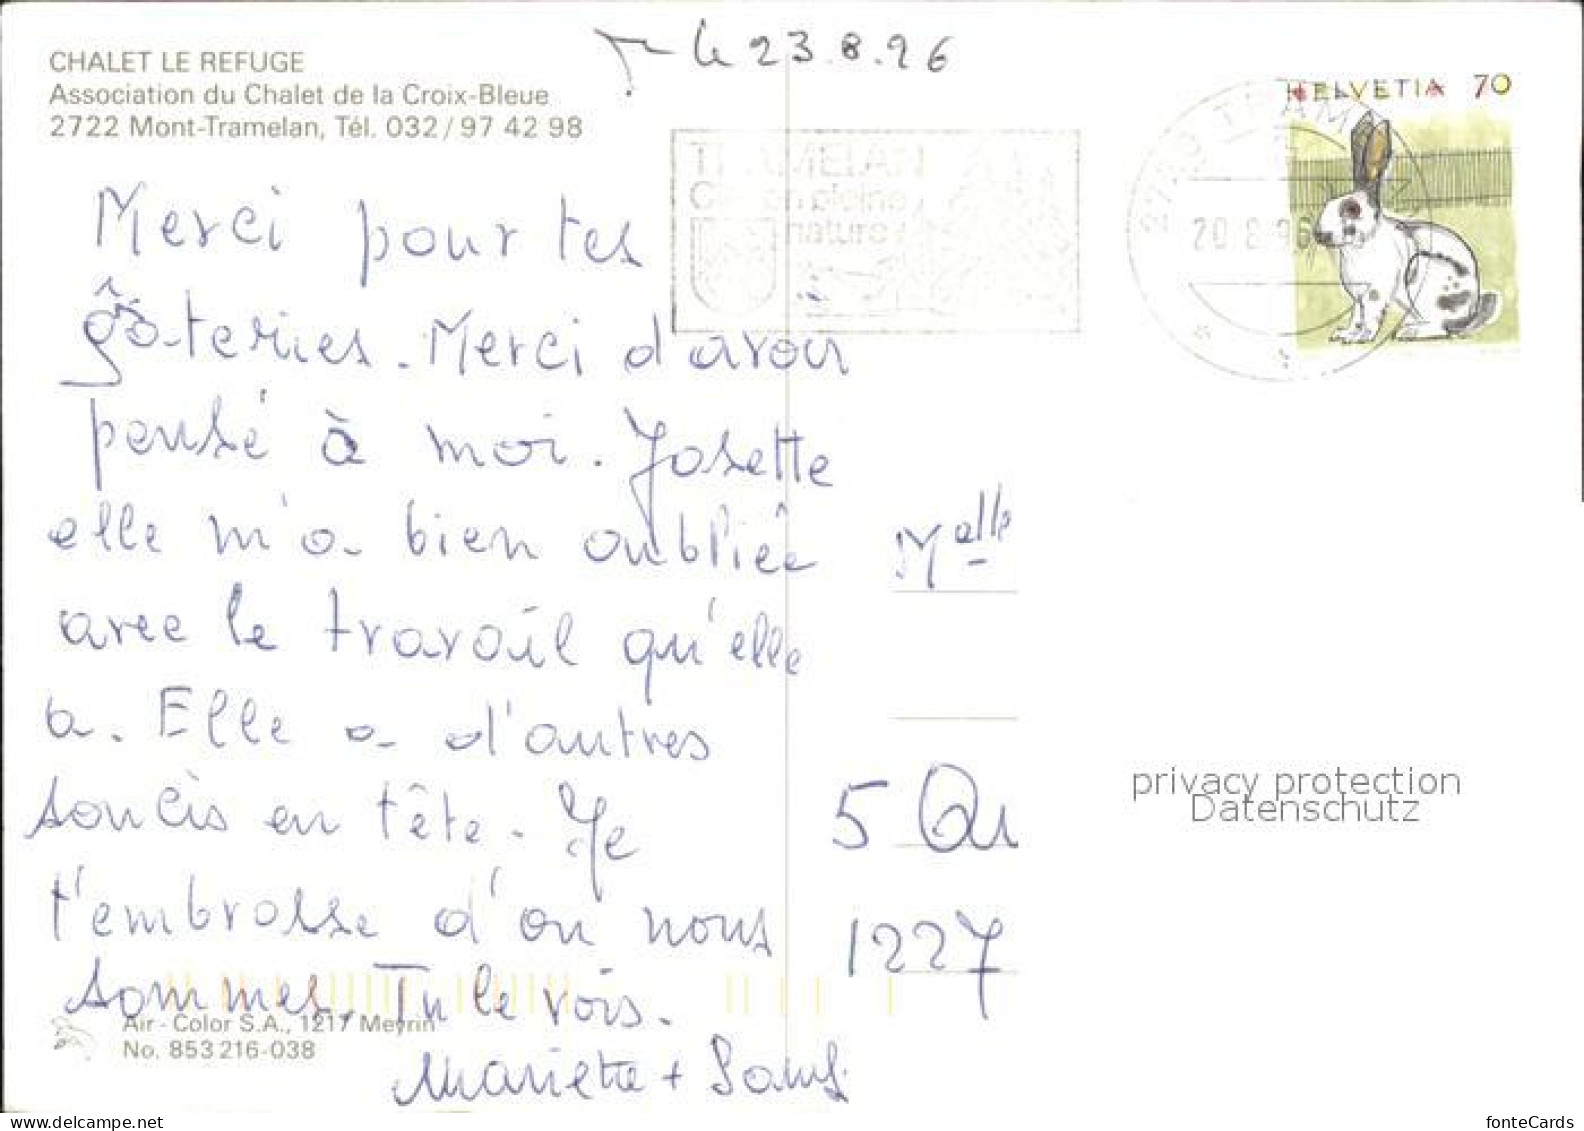 CHALET LE REFUGE
Association du Chalet de la Croix-Bleue
2722 Mont-Tramelan, Tél. 032/97 42 98
le 23.8.96
HELVETIA 70
TRAMELAN
en pleine
nature
20.8.96
Merci pour tes
gâteries. Merci d'avoir
pensé à moi. Josette
elle m'a bien oubliée
avec le travail qu'elle
a. Elle a d'autres
soucis en tête. Je
t'embrasse d'où nous
sommes. Tu le vois.
Mariette +
Melle
5 Qu
1227
privacy protection
Datenschutz
Air - Color S.A., 1217 Meyrin
No. 853 216-038
www.delcampe.net
fonteCards